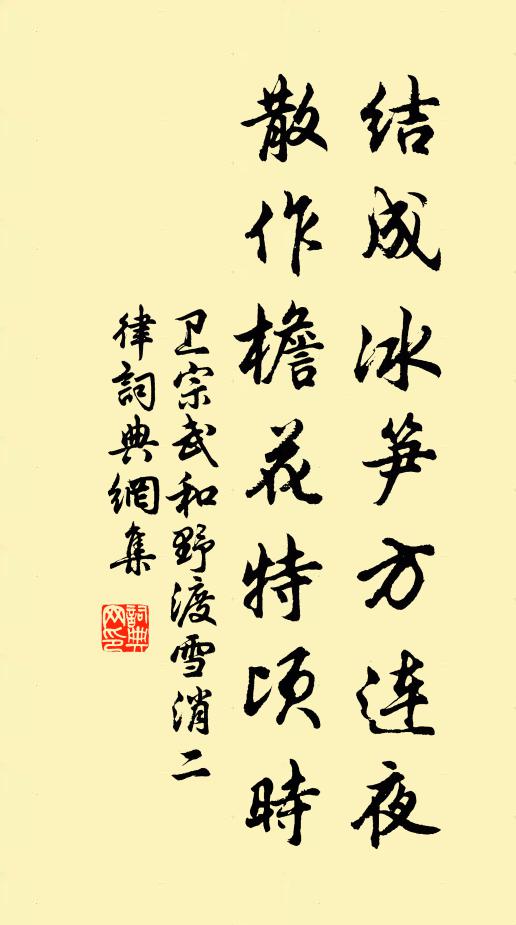 结成冰笋方连夜
散作檐花特顷时
卫宗武和野渡雪消二
律詞典網集
詞典网印